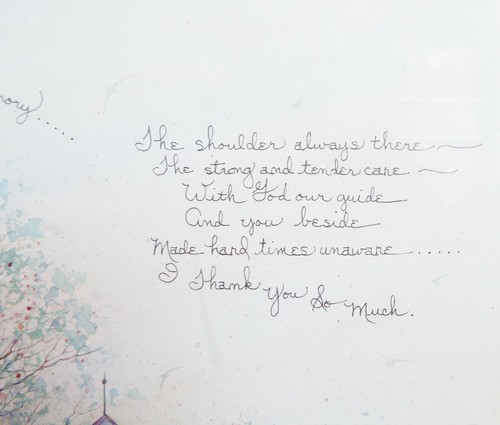 The shoulder always there ~
The strong and tender care ~
With God our guide
And you beside
Made hard times unaware.....
I Thank You So Much.